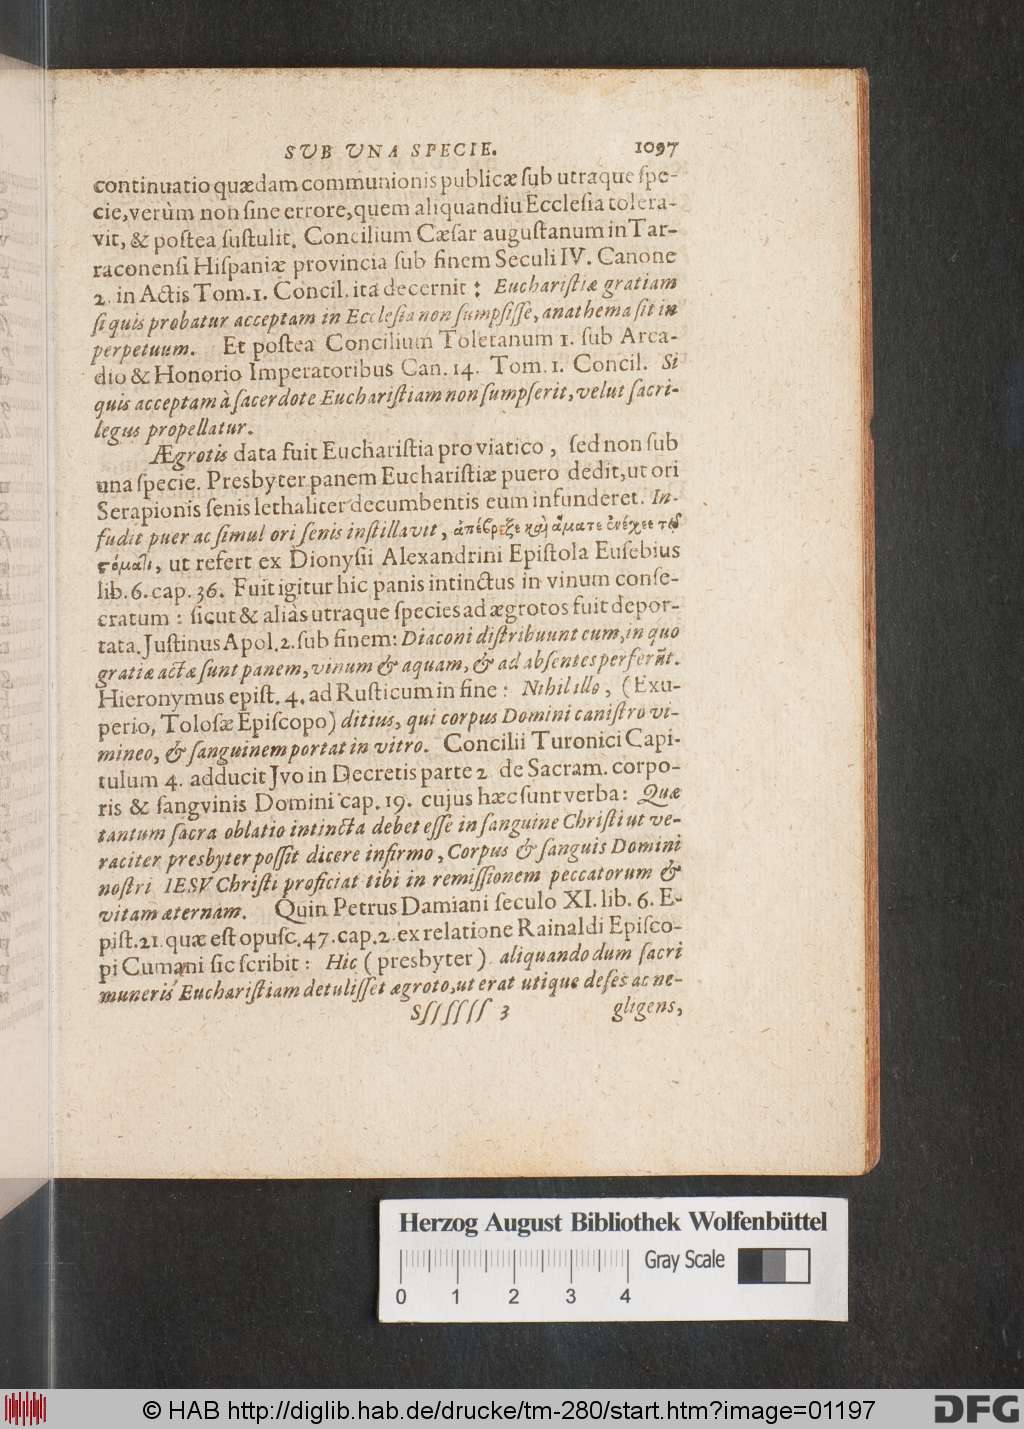 SUB UNA SPECIE. 1097
continuatio quædam communionis publicæ ſub utraque ſpe-
cie, verùm non ſine errore, quem aliquandiu Eccleſia tolera-
vit, & poſtea ſuſtulit. Concilium Cæſar auguſtanum in Tar-
raconenſi Hiſpaniæ provincia ſub finem Seculi IV. Canone
2. in Actis Tom. 1. Concil. ita decernit: Euchariſtiæ gratiam
ſi quis probatur acceptam in Eccleſia non ſumpſiſſe, anathema ſit in
perpetuum. Et poſtea Concilium Toletanum 1. ſub Arca-
dio & Honorio Imperatoribus Can. 14. Tom. 1. Concil. Si
quis acceptam à ſacerdote Euchariſtiam non ſumpſerit, velut ſacri-
legus propellatur.
Ægrotis data fuit Euchariſtia pro viatico, ſed non ſub
una ſpecie. Presbyter panem Euchariſtiæ puero dedit, ut ori
Serapionis ſenis lethaliter decumbentis eum infunderet. In-
fudit puer ac ſimul ori ſenis inſtillavit, ἀπέβρεξε καὶ ἅματε ἐνέχεε τῷ
ϛόματι, ut refert ex Dionyſii Alexandrini Epiſtola Euſebius
lib. 6. cap. 36. Fuit igitur hic panis intinctus in vinum conſe-
cratum: ſicut & aliàs utraque ſpecies ad ægrotos fuit depor-
tata. Juſtinus Apol. 2. ſub finem: Diaconi diſtribuunt eum, in quo
gratiæ actæ ſunt panem, vinum & aquam, & ad abſentes perferũt.
Hieronymus epiſt. 4. ad Ruſticum in fine: Nihil illo, (Exu-
perio, Toloſæ Epiſcopo) ditius, qui corpus Domini caniſtro vi-
mineo, & ſanguinem portat in vitro. Concilii Turonici Capi-
tulum 4. adducit Jvo in Decretis parte 2 de Sacram. corpo-
ris & ſangvinis Domini cap. 19. cujus hæc ſunt verba: Quæ
tantum ſacra oblatio intincta debet eſſe in ſanguine Chriſti ut ve-
raciter presbyter poſſit dicere infirmo, Corpus & ſanguis Domini
noſtri IESV Chriſti proficiat tibi in remiſſionem peccatorum &
vitam æternam. Quin Petrus Damiani ſeculo XI. lib. 6. E-
piſt. 21. quæ eſt opuſc. 47. cap. 2. ex relatione Rainaldi Epiſco-
pi Cumani ſic ſcribit: Hic (presbyter) aliquando dum ſacri
muneris Euchariſtiam detuliſſet ægroto, ut erat utique deſes ac ne-
Sſſſſſſ 3 gligens,
Herzog August Bibliothek Wolfenbüttel
Gray Scale
0 1 2 3 4
© HAB http://diglib.hab.de/drucke/tm-280/start.htm?image=01197
DFG